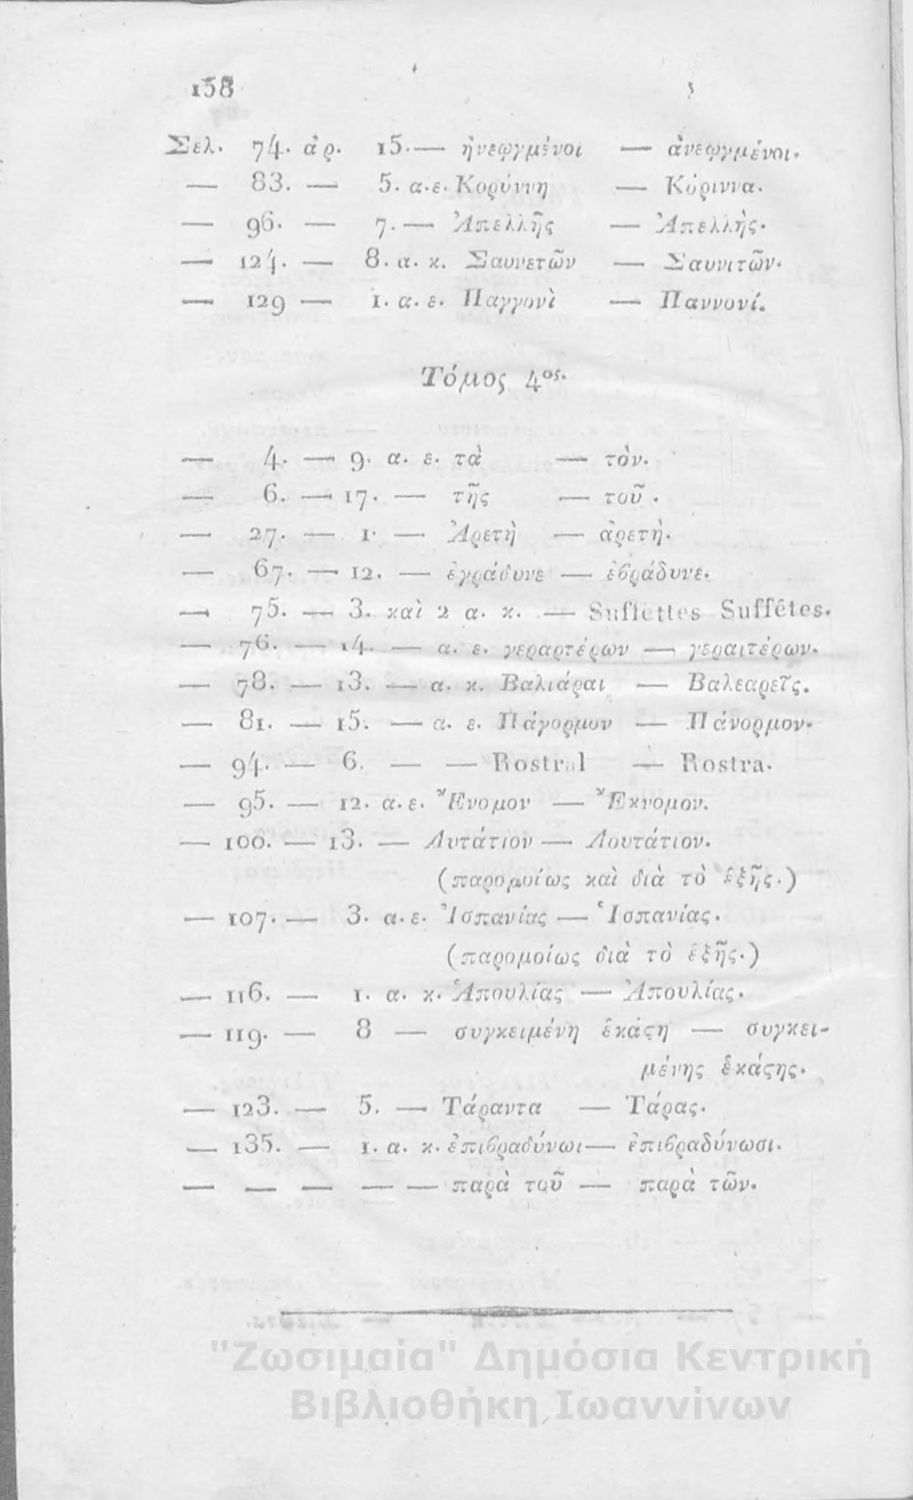 158
Σελ. 74. ἀρ. 15.— ἠνεῳγμένοι — ἀνεῳγμένοι.
— 83. — 5. α.ε. Κορύννη — Κόριννα.
— 96. — 7. — Ἀπελλῆς — Ἀπελλὴς.
— 124. — 8. α. κ. Σαυνετῶν — Σαυνιτῶν.
— 129 — 1. α. ε. Παγγονὶ — Παννονί.
Τόμος 4ος.
— 4. — 9. α. ε. τὰ — τὸν.
— 6. — 17. — τῆς — τοῦ.
— 27. — 1. — Ἀρετὴ — ἀρετὴ.
— 67. — 12. — ἐγράδυνε — ἐβράδυνε.
— 75. — 3. καὶ 2 α. κ. — Suffettes Suffêtes.
— 76. — 14. — α. ε. γεραρτέρων — γεραιτέρων.
— 78. — 13. — α. κ. Βαλιάραι — Βαλεαρεῖς.
— 81. — 15. — α. ε. Πάγορμον — Πάνορμον.
— 94. — 6. — — Rostral — Rostra.
— 95. — 12. α.ε. Ἔνομον — Ἔκνομον.
— 100. — 13. — Λυτάτιον — Λουτάτιον.
(παρομοίως καὶ διὰ τὸ ἑξῆς.)
— 107. — 3. α.ε. Ἰσπανίας — Ἱσπανίας.
(παρομοίως διὰ τὸ ἑξῆς.)
— 116. — 1. α. κ. Ἁπουλίας — Ἀπουλίας.
— 119. — 8 — συγκειμένη ἑκάςη — συγκει-
μένης ἑκάςης.
— 123. — 5. — Τάραντα — Τάρας.
— 135. — 1. α. κ. ἐπιβραδύνωι — ἐπιβραδύνωσι.
— — — — — παρὰ τοῦ — παρὰ τῶν.
"Ζωσιμαία" Δημόσια Κεντρική
Βιβλιοθήκη Ιωαννίνων